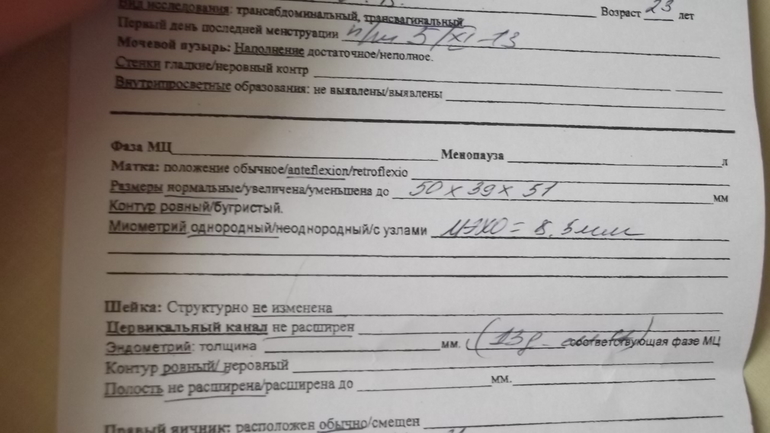 Вид исследования: трансабдоминальный, трансвагинальный
Возраст 23 лет
Первый день последней менструации п/м 5/XI-13
Мочевой пузырь: Наполнение достаточное/неполное.
Стенки гладкие/неровный контр
Внутрипросветные образования: не выявлены/выявлены
Фаза МЦ Менопауза л
Матка: положение обычное/anteflexion/retroflexio
Размеры нормальные/увеличена/уменьшена до 50 x 39 x 51 мм
Контур ровный/бугристый.
Миометрий однородный/неоднородный/с узлами МЭХО = 8,5 мм
Шейка: Структурно не изменена
Цервикальный канал не расширен
Эндометрий: толщина мм. (13д соответствующая фазе МЦ
Контур ровный/ неровный
Полость не расширена/расширена до мм.
Правый яичник: расположен обычно/смещен